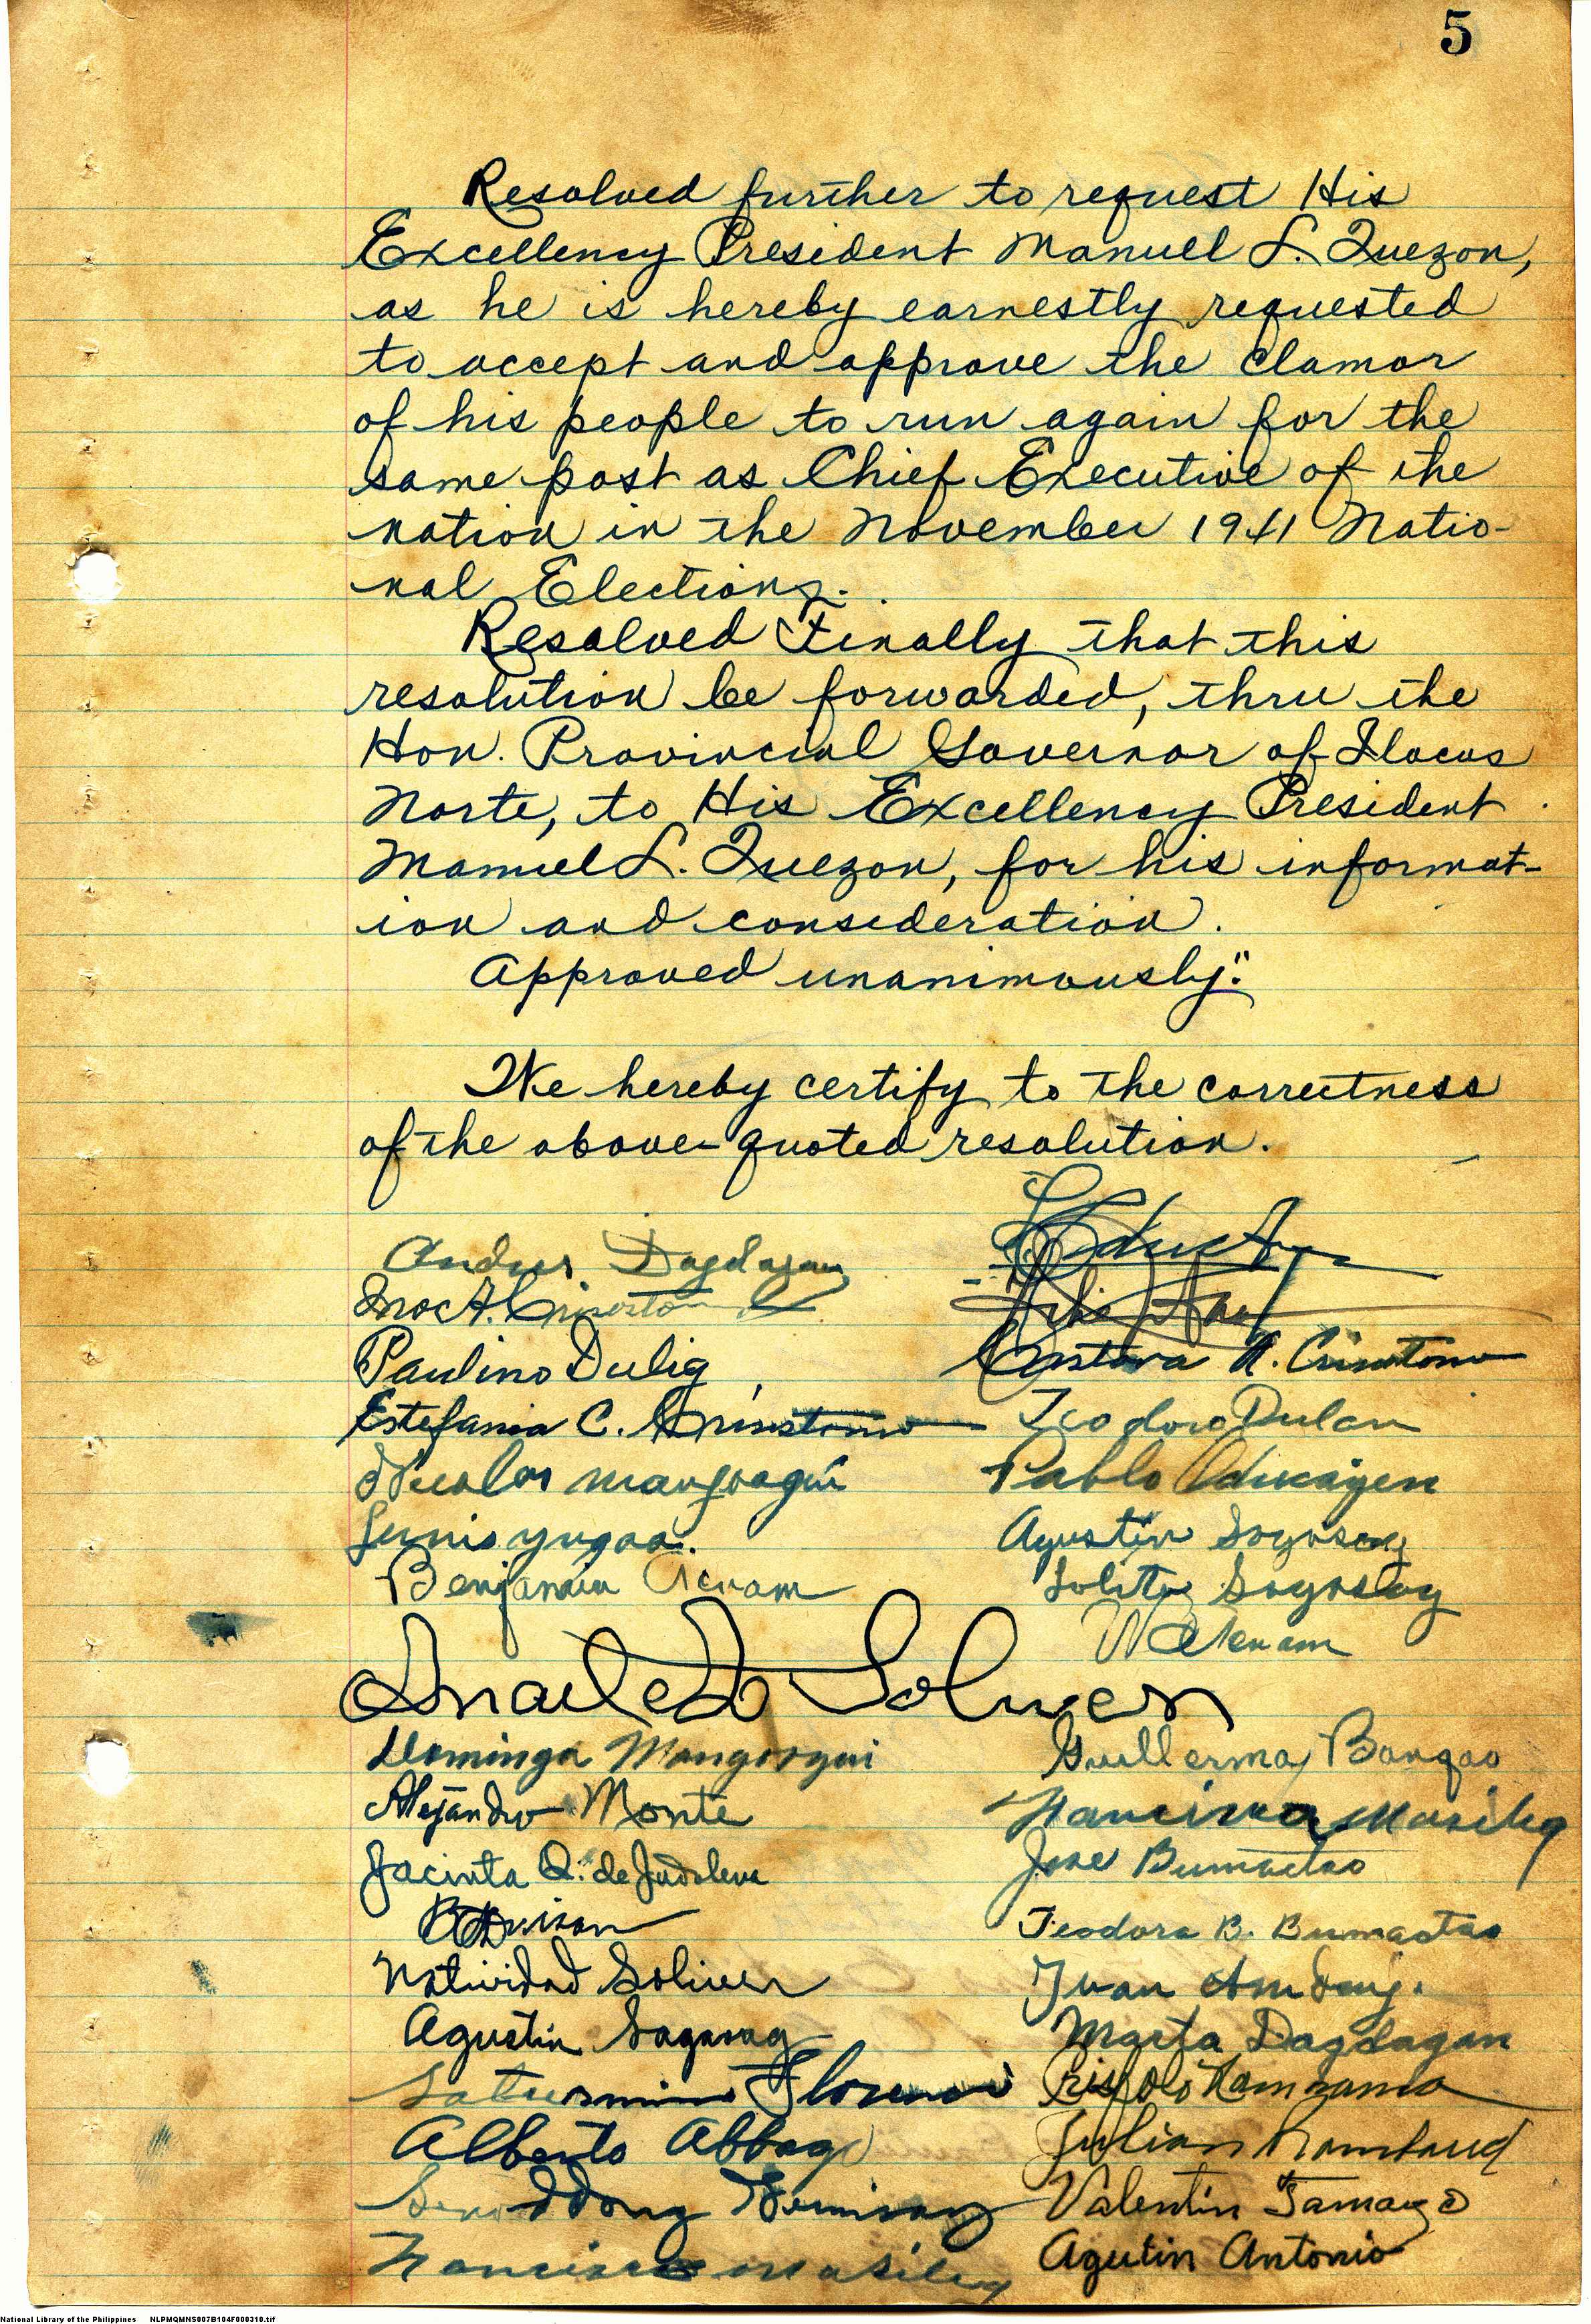 5
Resolved further to request His
Excellency President Manuel L. Quezon,
as he is hereby earnestly requested
to accept and approve the clamor
of his people to run again for the
same post as Chief Executive of the
nation in the November 1941 Natio-
nal Elections.
Resolved Finally that this
resolution be forwarded, thru the
Hon. Provincial Governor of Ilocos
Norte, to His Excellency President
Manuel L. Quezon, for his informat-
ion and consideration.
Approved unanimously."
We hereby certify to the correctness
of the above-quoted resolution.
Andres Dagdagan
Paulino Dulig
A. Crisostomo
Estefania C. Crisostomo
Teodoro Dulan
Nicolas
Pablo Aducayen
Agustin Sagasag
Benjamin Acnam
Lolita Sagasag
Acnam
Anacleto Soliven
Dominga Mangosgui
Guillerma Bangao
Alejandro Monte
Francisca Masileg
Jacinta Q. de
Jose Bumactao
Teodora B. Bumactao
Natividad Soliven
Juan
Agustin Sagasag
Marta Dagdagan
Saturnino
Alberto Abbago
Julian
Valentin Tamayo
Francisco Masileg
Agutin Antonio
National Library of the Philippines NLPMQMNS007B104F000310.tif